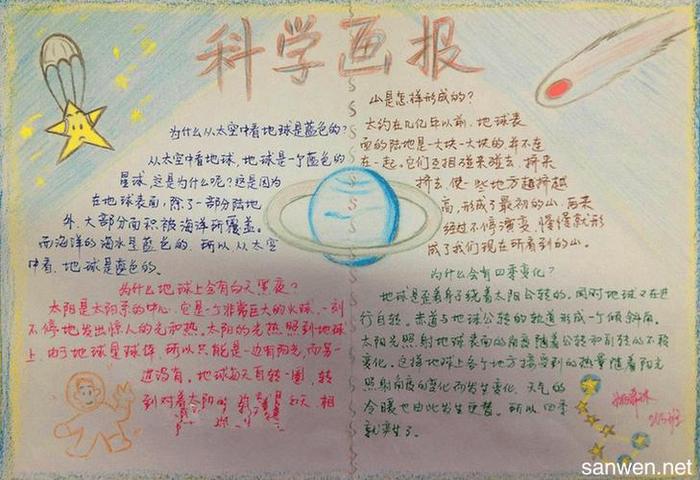 科学画报
为什么从太空中看地球是蓝色的?
从太空中看地球,地球是一个蓝色的
星球,这是为什么呢?这是因为
在地球表面,除了一部分陆地
外,大部分面积被海洋所覆盖。
而海洋的海水是蓝色的,所以从太空
中看,地球是蓝色的。
为什么地球上会有白天黑夜?
太阳是太阳系的中心,它是一个非常巨大的火球,一刻
不停地发出惊人的光和热。太阳的光热照到地球
上,由于地球是球体,所以只能是一边有阳光,而另一
边没有。地球每天自转一圈,转
到对着太阳的
山是怎样形成的?
大约在几亿年以前,地球表
面的陆地是一大块一大块的并不连
在一起。它们互相碰来碰去,挤来
挤去,使一些地方越挤越
高,形成了最初的山,后来
经过不停演变,慢慢就形
成了我们现在所看到的山。
为什么会有四季变化?
地球是歪着身子绕着太阳公转的。同时地球又在进
行自转。赤道与地球公转的轨道形成一个倾斜角。
太阳光照射地球表面的角度随着公转和自转的不断
变化。这样地球上各个地方接受到的热量随着阳光
照射角度的变化而发生变化,天气的
冷暖也由此发生更替。所以四季
就产生了。
sanwen.net